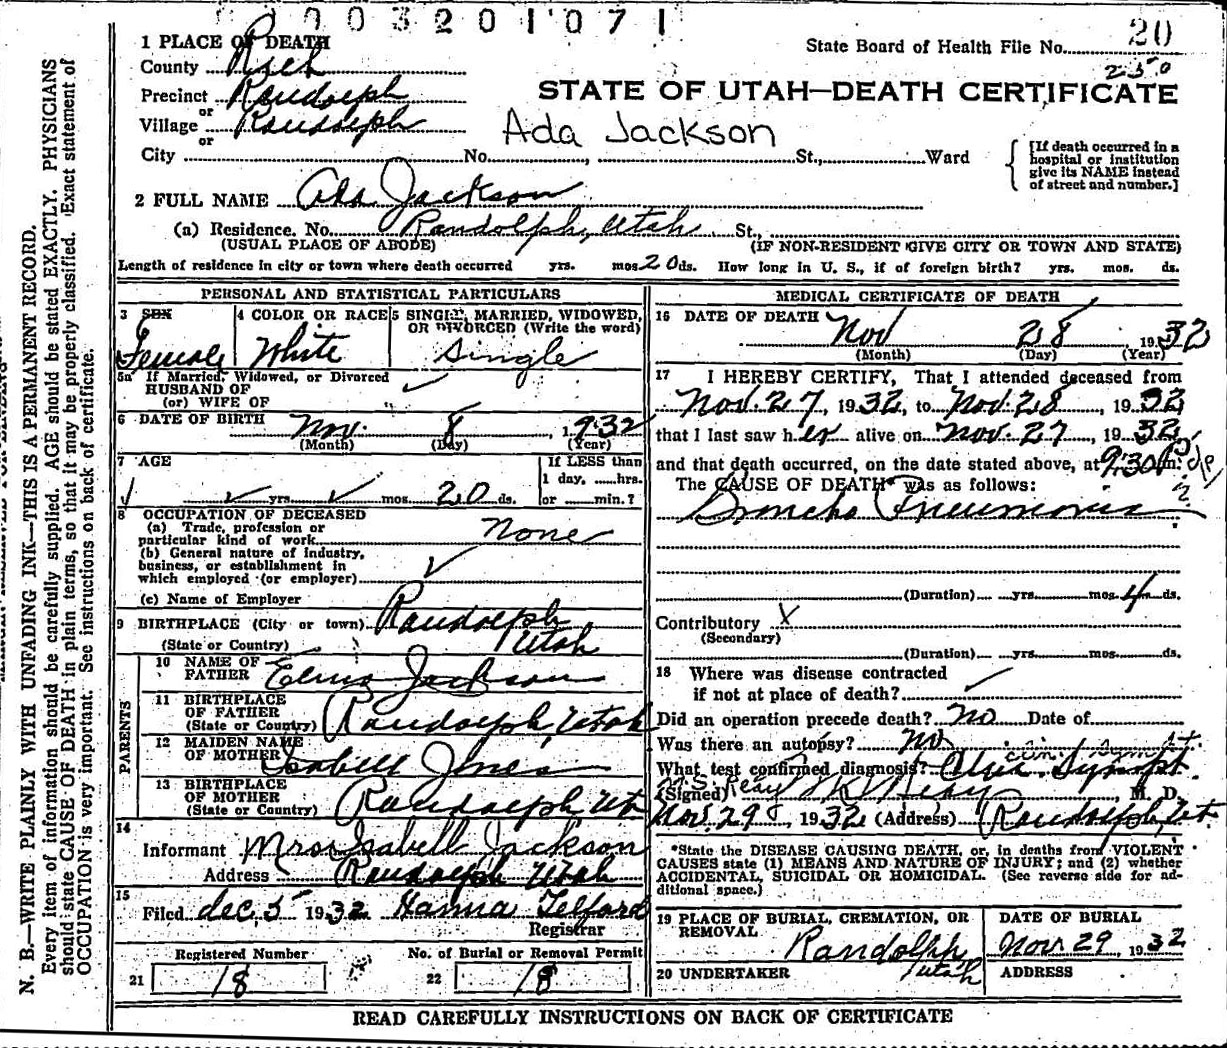 003201071
State Board of Health File No. 20
250
1 PLACE OF DEATH
County Rich
STATE OF UTAH—DEATH CERTIFICATE
Precinct Randolph
or
Village Randolph
or
Ada Jackson
City No. , St., Ward
[If death occurred in a
hospital or institution
give its NAME instead
of street and number.]
2 FULL NAME Ada Jackson
(a) Residence. No. Randolph, Utah St.,
(USUAL PLACE OF ABODE) (IF NON-RESIDENT GIVE CITY OR TOWN AND STATE)
Length of residence in city or town where death occurred yrs. mos. 20 ds. How long in U. S., if of foreign birth? yrs. mos. ds.
PERSONAL AND STATISTICAL PARTICULARS
3 SEX
Female
4 COLOR OR RACE
White
5 SINGLE, MARRIED, WIDOWED,
OR DIVORCED (Write the word)
Single
5a If Married, Widowed, or Divorced
HUSBAND OF
(or) WIFE OF
6 DATE OF BIRTH Nov. 8, 1932
(Month) (Day) (Year)
7 AGE
yrs. mos. 20 ds.
If LESS than
1 day, hrs.
or min.?
8 OCCUPATION OF DECEASED
(a) Trade, profession or
particular kind of work None
(b) General nature of industry,
business, or establishment in
which employed (or employer)
(c) Name of Employer
9 BIRTHPLACE (City or town) Randolph
(State or Country) Utah
PARENTS
10 NAME OF
FATHER Jackson
11 BIRTHPLACE
OF FATHER
(State or Country) Randolph, Utah
12 MAIDEN NAME
OF MOTHER Isabell Jones
13 BIRTHPLACE
OF MOTHER
(State or Country) Randolph Ut
14
Informant Mrs Isabell Jackson
Address Randolph Utah
15
Filed Dec 5 1932 Hanna Telford
Registrar
Registered Number No. of Burial or Removal Permit
21 18 22 18
MEDICAL CERTIFICATE OF DEATH
16 DATE OF DEATH
Nov 28, 1932
(Month) (Day) (Year)
17 I HEREBY CERTIFY, That I attended deceased from
Nov. 27, 1932, to Nov. 28, 1932
that I last saw her alive on Nov. 27, 1932
and that death occurred, on the date stated above, at 9:30 m.
The CAUSE OF DEATH was as follows:
Broncho Pneumonia
(Duration) yrs. mos. 4 ds.
Contributory X
(Secondary)
(Duration) yrs. mos. ds.
18 Where was disease contracted
if not at place of death?
Did an operation precede death? No Date of
Was there an autopsy? No
clin. sympt.
What test confirmed diagnosis? Clin. Sympt.
Reay
(Signed) Reay, M. D.
Nov. 29, 1932 (Address) Randolph, Ut.
*State the DISEASE CAUSING DEATH, or, in deaths from VIOLENT
CAUSES state (1) MEANS AND NATURE OF INJURY; and (2) whether
ACCIDENTAL, SUICIDAL OR HOMICIDAL. (See reverse side for ad-
ditional space.)
19 PLACE OF BURIAL, CREMATION, OR
REMOVAL
Randolph
Utah
DATE OF BURIAL
Nov 29 1932
20 UNDERTAKER ADDRESS
READ CAREFULLY INSTRUCTIONS ON BACK OF CERTIFICATE
N. B.—WRITE PLAINLY WITH UNFADING INK—THIS IS A PERMANENT RECORD.
Every item of information should be carefully supplied. AGE should be stated EXACTLY. PHYSICIANS
should state CAUSE OF DEATH in plain terms, so that it may be properly classified. Exact statement of
OCCUPATION is very important. See instructions on back of certificate.